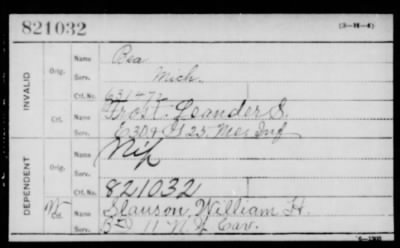 821032
(3-H-4)
INVALID
Orig. Name Bea
Serv. Mich.
Ctf. No. 63147
Ctf. Name Frost Leander S.
Serv. E 30 9 25 Me. Inf
DEPENDENT
Orig. Name Nip
Serv.
Ctf. No. 821032
W Ctf. Name Slauson, William H.
Serv. 11 N.Y. Cav.